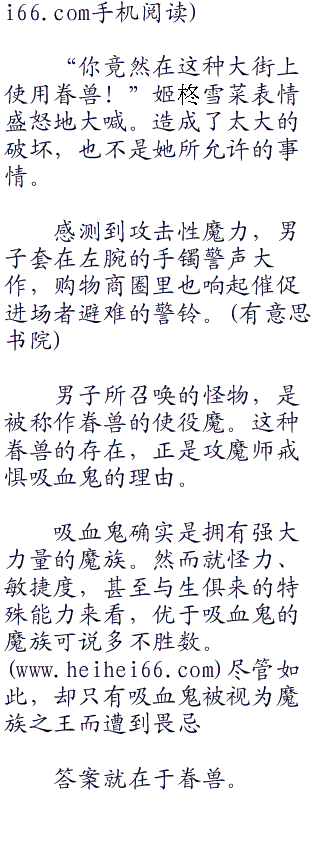 i66.com手机阅读)
“你竟然在这种大街上
使用眷兽！”姬柊雪菜表情
盛怒地大喊。造成了太大的
破坏，也不是她所允许的事
情。
感测到攻击性魔力，男
子套在左腕的手镯警声大
作，购物商圈里也响起催促
进场者避难的警铃。(有意思
书院)
男子所召唤的怪物，是
被称作眷兽的使役魔。这种
眷兽的存在，正是攻魔师戒
惧吸血鬼的理由。
吸血鬼确实是拥有强大
力量的魔族。然而就怪力、
敏捷度，甚至与生俱来的特
殊能力来看，优于吸血鬼的
魔族可说多不胜数。
(www.heihei66.com)尽管如
此，却只有吸血鬼被视为魔
族之王而遭到畏忌
答案就在于眷兽。